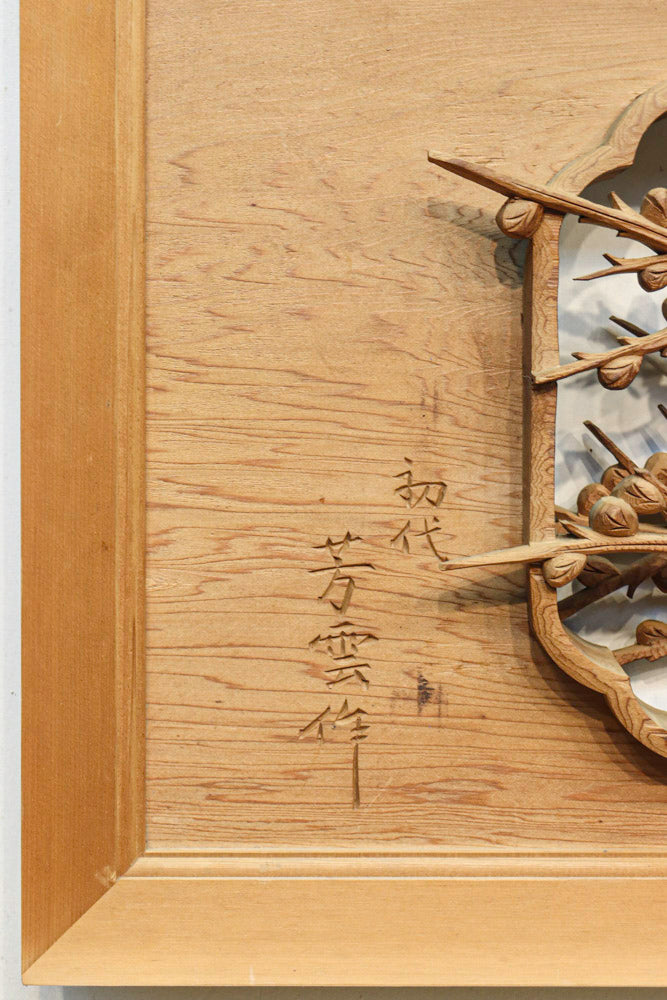 初代
芳雲作